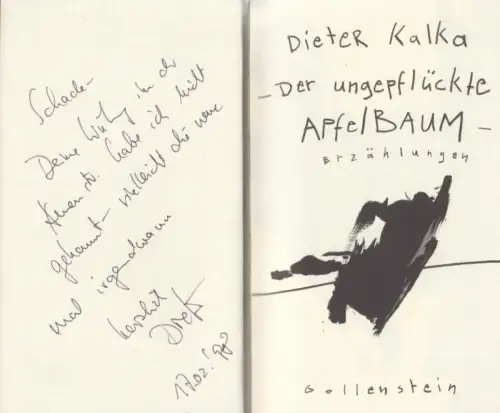 Schade –
Deine Whg in der
str. habe ich nicht
gekannt – vielleicht die neue
mal irgendwann
herzlich
Dieter
17.02.'98
Dieter Kalka
– Der ungepflückte
Apfelbaum –
Erzählungen
Gollenstein